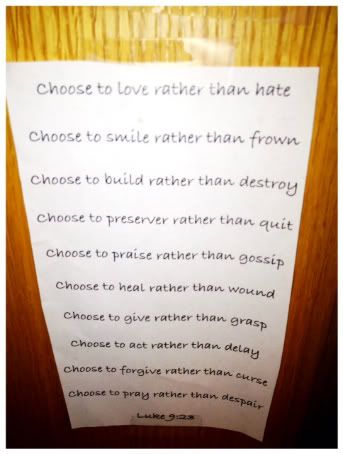 Choose to love rather than hate
Choose to smile rather than frown
Choose to build rather than destroy
Choose to preserver rather than quit
Choose to praise rather than gossip
Choose to heal rather than wound
Choose to give rather than grasp
Choose to act rather than delay
Choose to forgive rather than curse
Choose to pray rather than despair
Luke 9:23